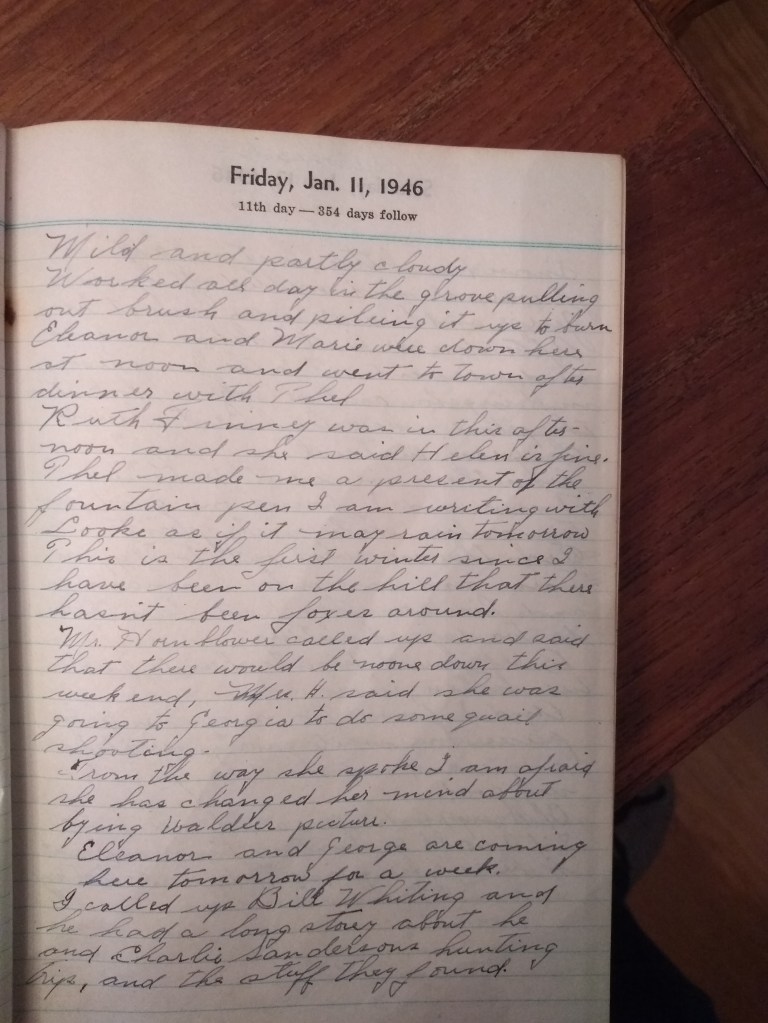 Friday, Jan. 11, 1946
11th day — 354 days follow
Mild and partly cloudy
Worked all day in the grove pulling
out brush and pileing it up to burn
Eleanor and Marie were down here
at noon and went to town after
dinner with Phel
Ruth Finney was in this after-
noon and she said Helen is fine.
Phel made me a present of the
fountain pen I am writing with
Looks as if it may rain tomorrow
This is the first winter since I
have been on the hill that there
hasn't been foxes around.
Mr. Hornblower called up and said
that there would be noone down this
week end, Mrs. H. said she was
going to Georgia to do some quail
shooting.
From the way she spoke I am afraid
she has changed her mind about
bying picture.
Eleanor and George are coming
here tomorrow for a week.
I called up Bill Whiting and
he had a long story about he
and Charlie Sandersons hunting
trips, and the stuff they found.